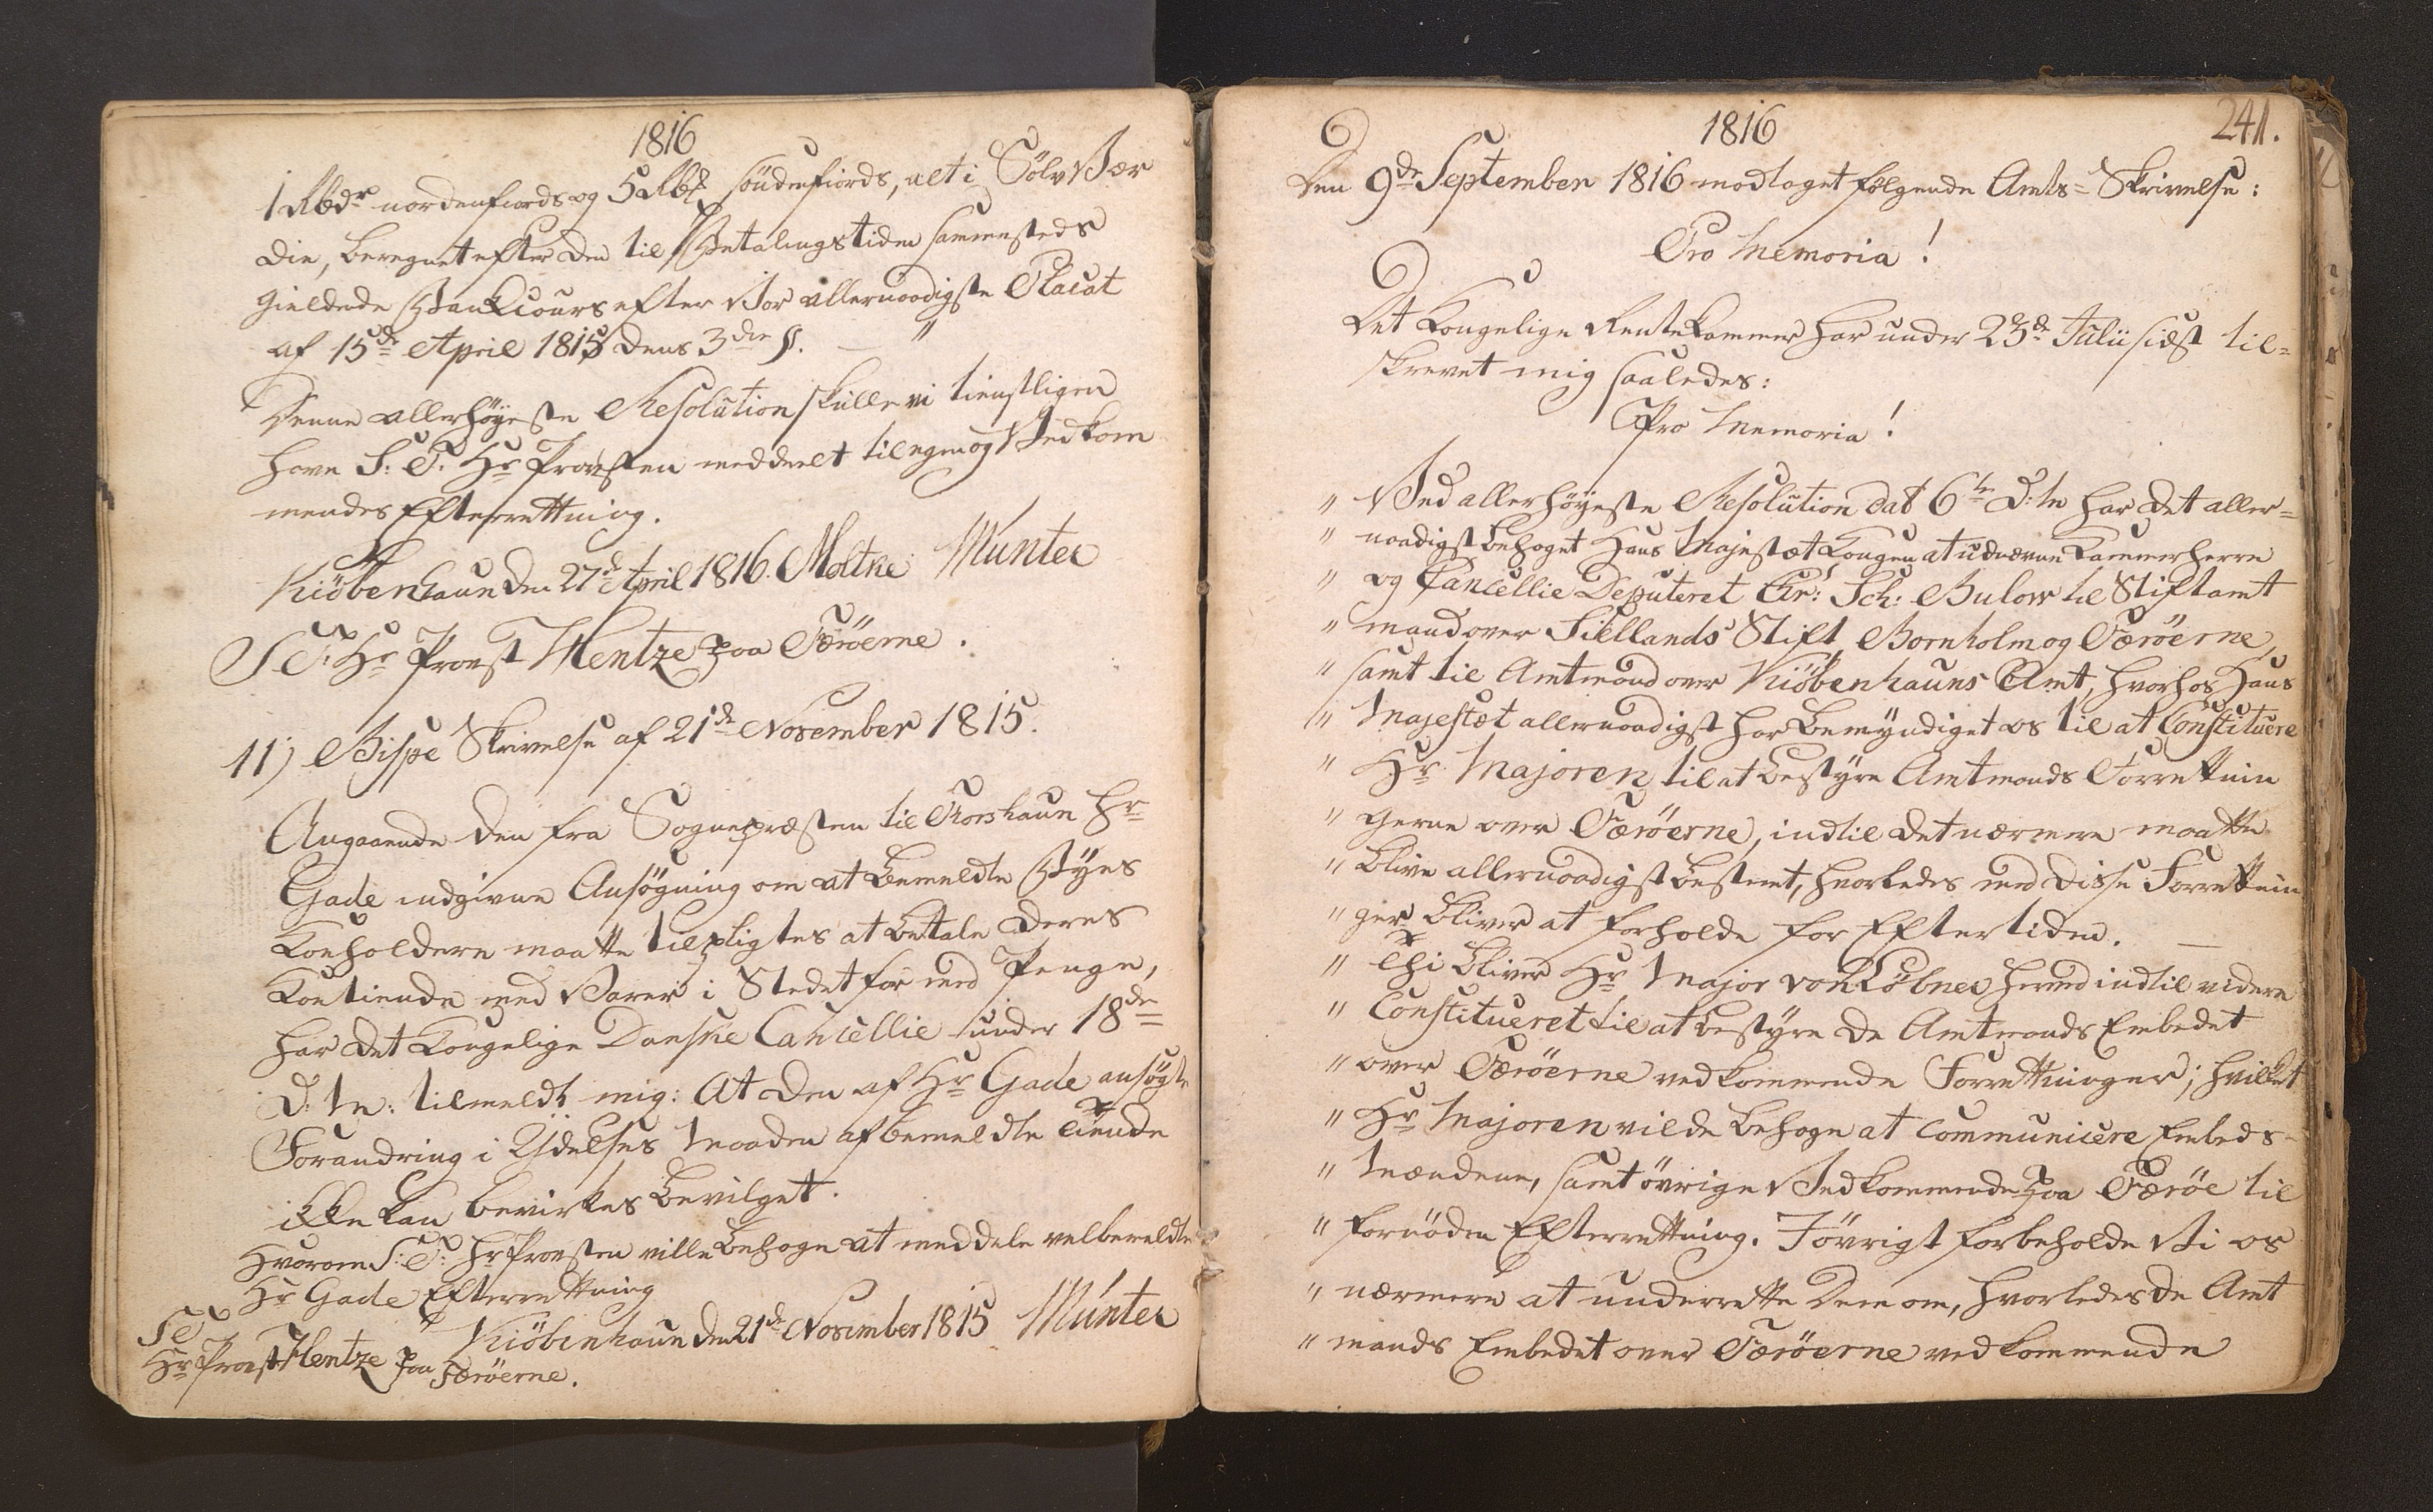 1816
1 Rbdr nordenfiords og 5 Rbß söndenfiords, alt i Sölv Vær
die, beregnet efter den til Betalingstiden sammesteds
gieldende Bank Cours efter Vor allernaadigste Placat
af 15de April 1815 dens 3die §. — "
Denne allerhöyeste Resolution skulle vi tienstligen
have S: T. Hr Provsten meddeelt til egen og Vedkom
mendes Efterrettning.
Kiöbenhaun den 27de April 1816. Moltke Münter
S T: Hr Provst Hentze paa Færöerne.
11) Bispe Skrivelse af 21de November 1815.
Angaaende den fra Sognepræsten til Thorshaun Hr
Gade indgivne Ansögning om at bemeldte Byes
Koeholdere maatte tilpligtes at betale deres
Koetiende med Varer i Stedet for med Penge,
har det Kongelige Danske Cancellie under 18de
D: M: tilmeldt mig: At den af Hr Gade ansögte
Forandring i Ydelses Maaden af bemeldte Tiende
ikke kan bevirkes bevilget.
Hvorom S: T: Hr Provsten ville behage at meddele velbemeldte
Hr Gade Efterrettning
Kiöbenhaun den 21de November 1815 Münter
S T
Hr Provst Hentze paa Færöerne.
1816
241.
Den 9de September 1816 modtaget fölgende Amts= Skrivelse:
Pro Memoria!
Det Kongelige Rentekammer har under 23de Julii sidst til=
skrevet mig saaledes:
Pro Memoria!
" Ved allerhöyeste Resolution dat 6te D: M har det aller=
" naadigst behaget Hans Majestæt Kongen at udnævne Kammerherre
" og Cancellie Deputeret Fr: Sch: Bulow til Stiftamt
" mand over Siellands Stift, Bornholm og Færöerne,
" samt til Amtmand over Kiöbenhauns Amt, hvorhos Hans
" Majestæt allernaadigst har bemyndiget os til at Constituere
" Hr Majoren til at bestyre Amtmands Forrettnin
" gerne over Færöerne, indtil det nærmere maatte
" blive allernaadigst bestemt, hvorledes med disse Forrettnin
" ger bliver at forholde for Eftertiden. —
" Thi bliver Hr Major von Löbner herved indtil videre
" Constitueret til at bestyre de Amtmands Embedet
" over Færöerne vedkommende Forrettninger; hvilket
" Hr Majoren vilde behage at communicere Embeds-
" Mændene, samt övrige Vedkommende paa Færöe til
" fornöden Efterrettning. Iövrigt forbeholde Vi os
" nærmere at underrette Dem om, hvorledes de Amt
" mands Embedet over Færöerne vedkommende